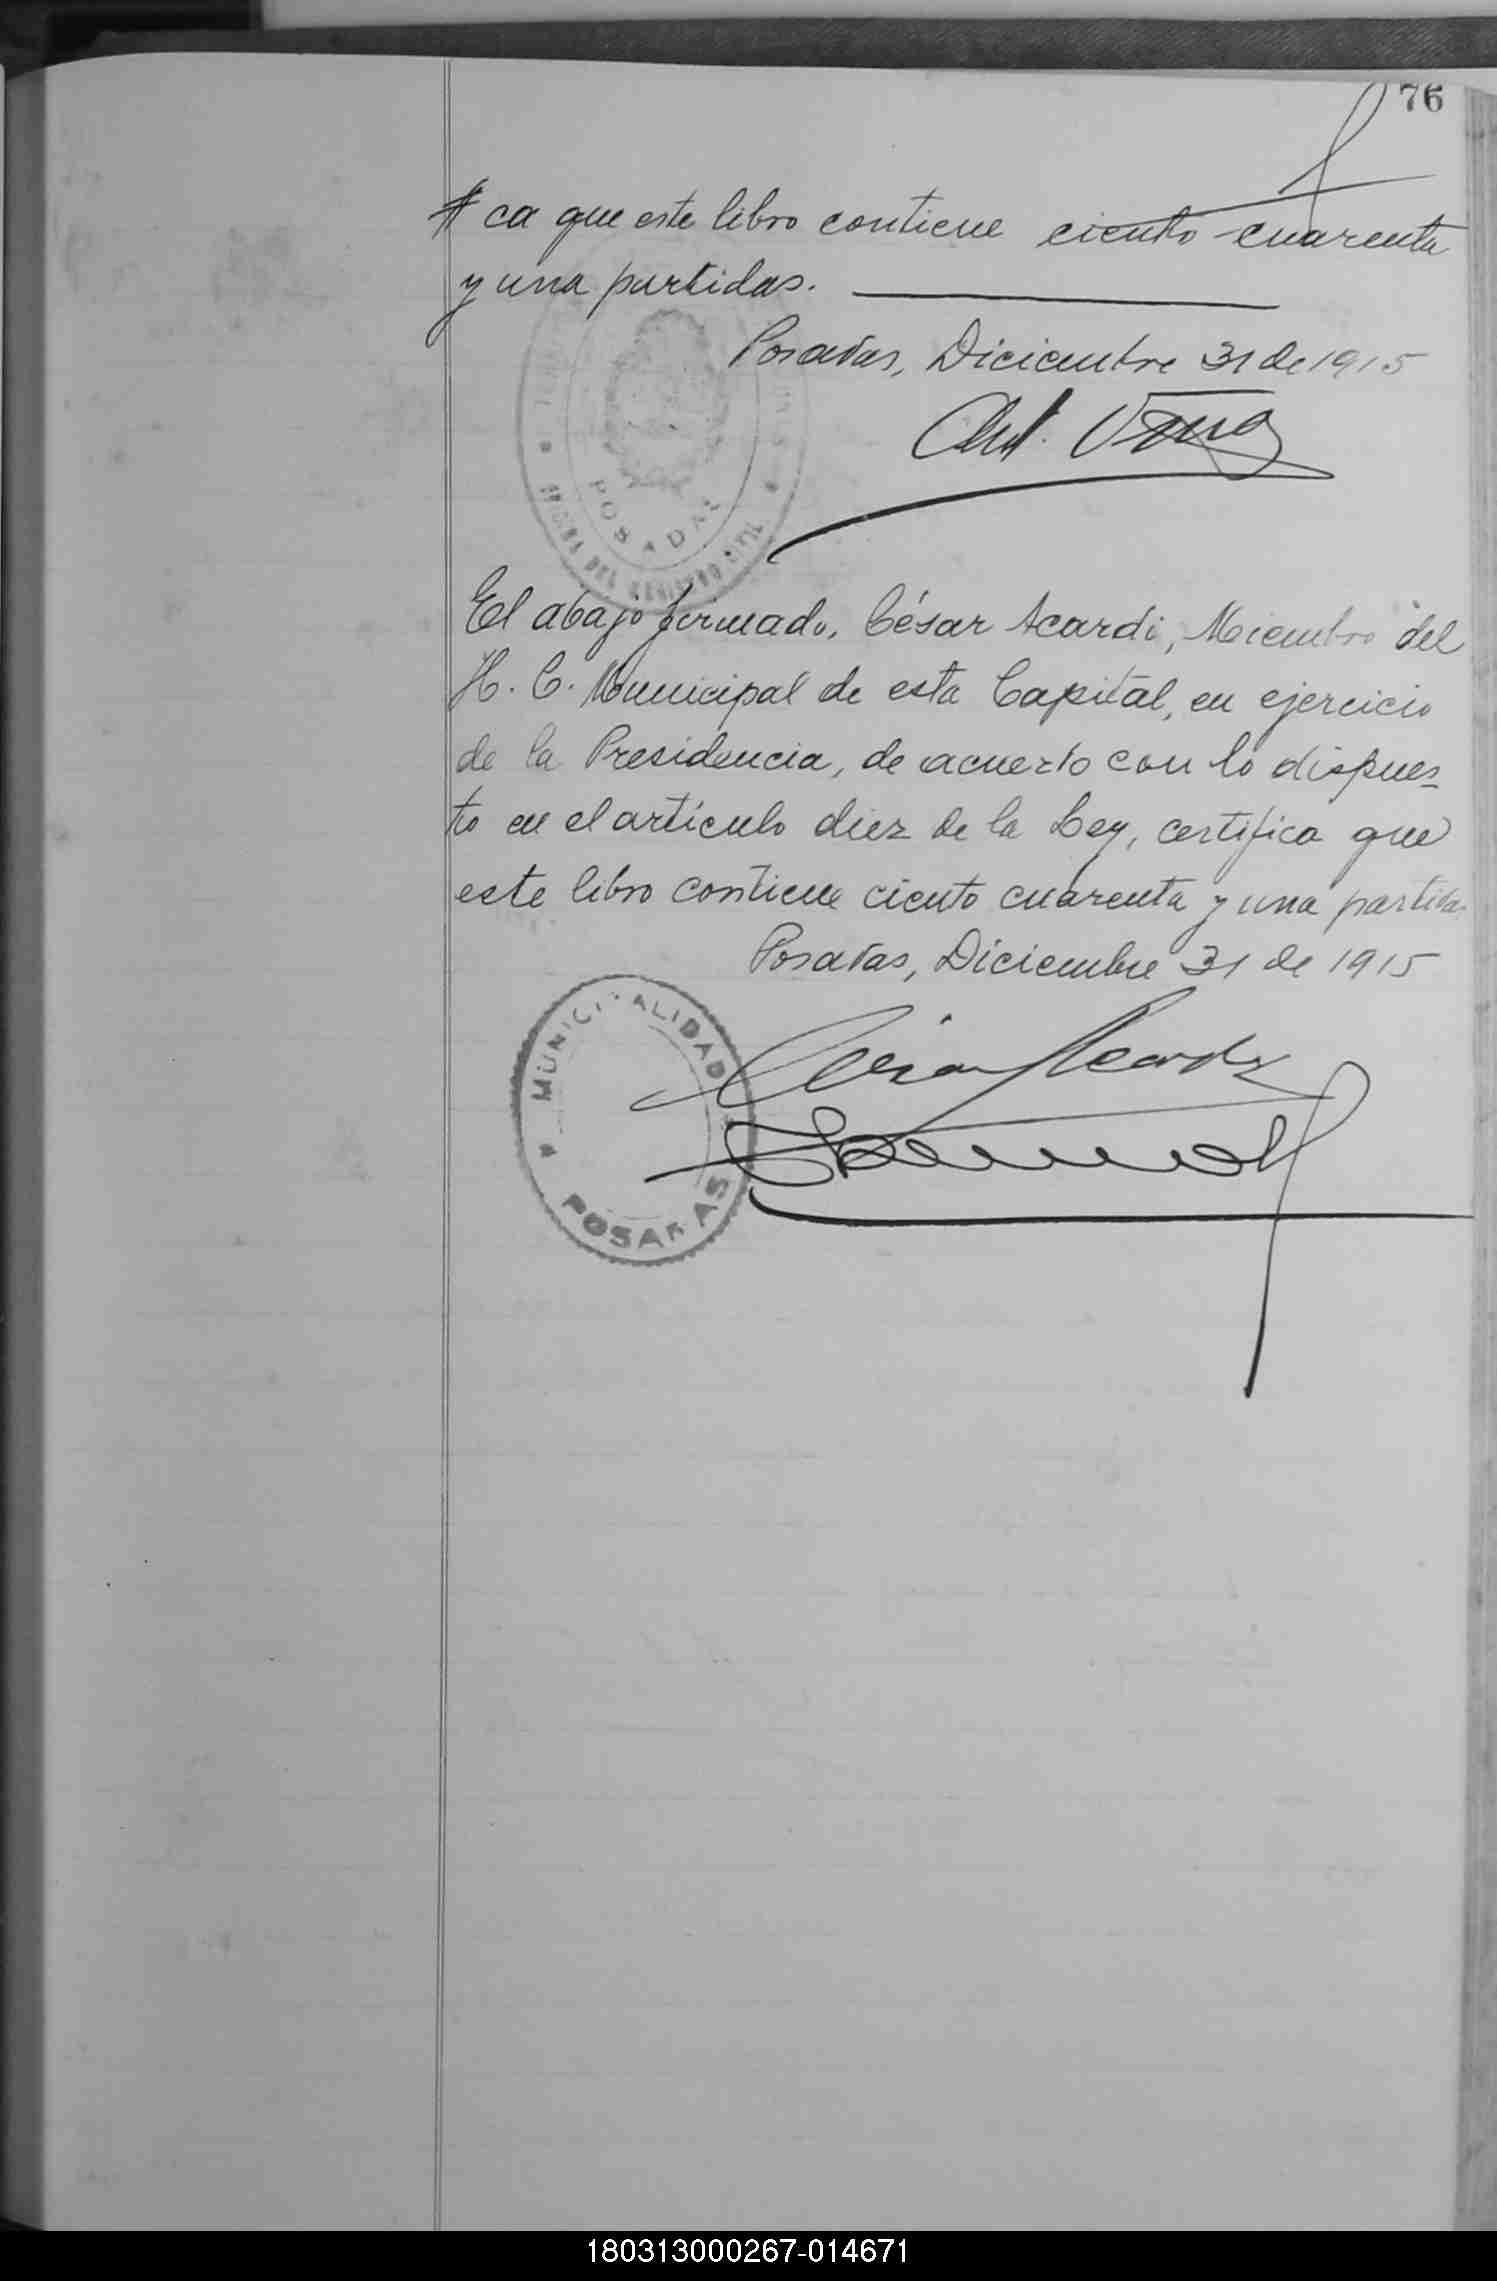 76
ca que este libro contiene ciento cuarenta
y una partidas.
Posadas, Diciembre 31 de 1915
POSADAS
OFICINA DEL REGISTRO CIVIL
El abajo firmado, César Acardi, Miembro del
H. C. Municipal de esta Capital, en ejercicio
de la Presidencia, de acuerdo con lo dispues_
to en el artículo diez de la Ley, certifica que
este libro contiene ciento cuarenta y una partidas
Posadas, Diciembre 31 de 1915
MUNICIPALIDAD
POSADAS
César Acardi
180313000267-014671